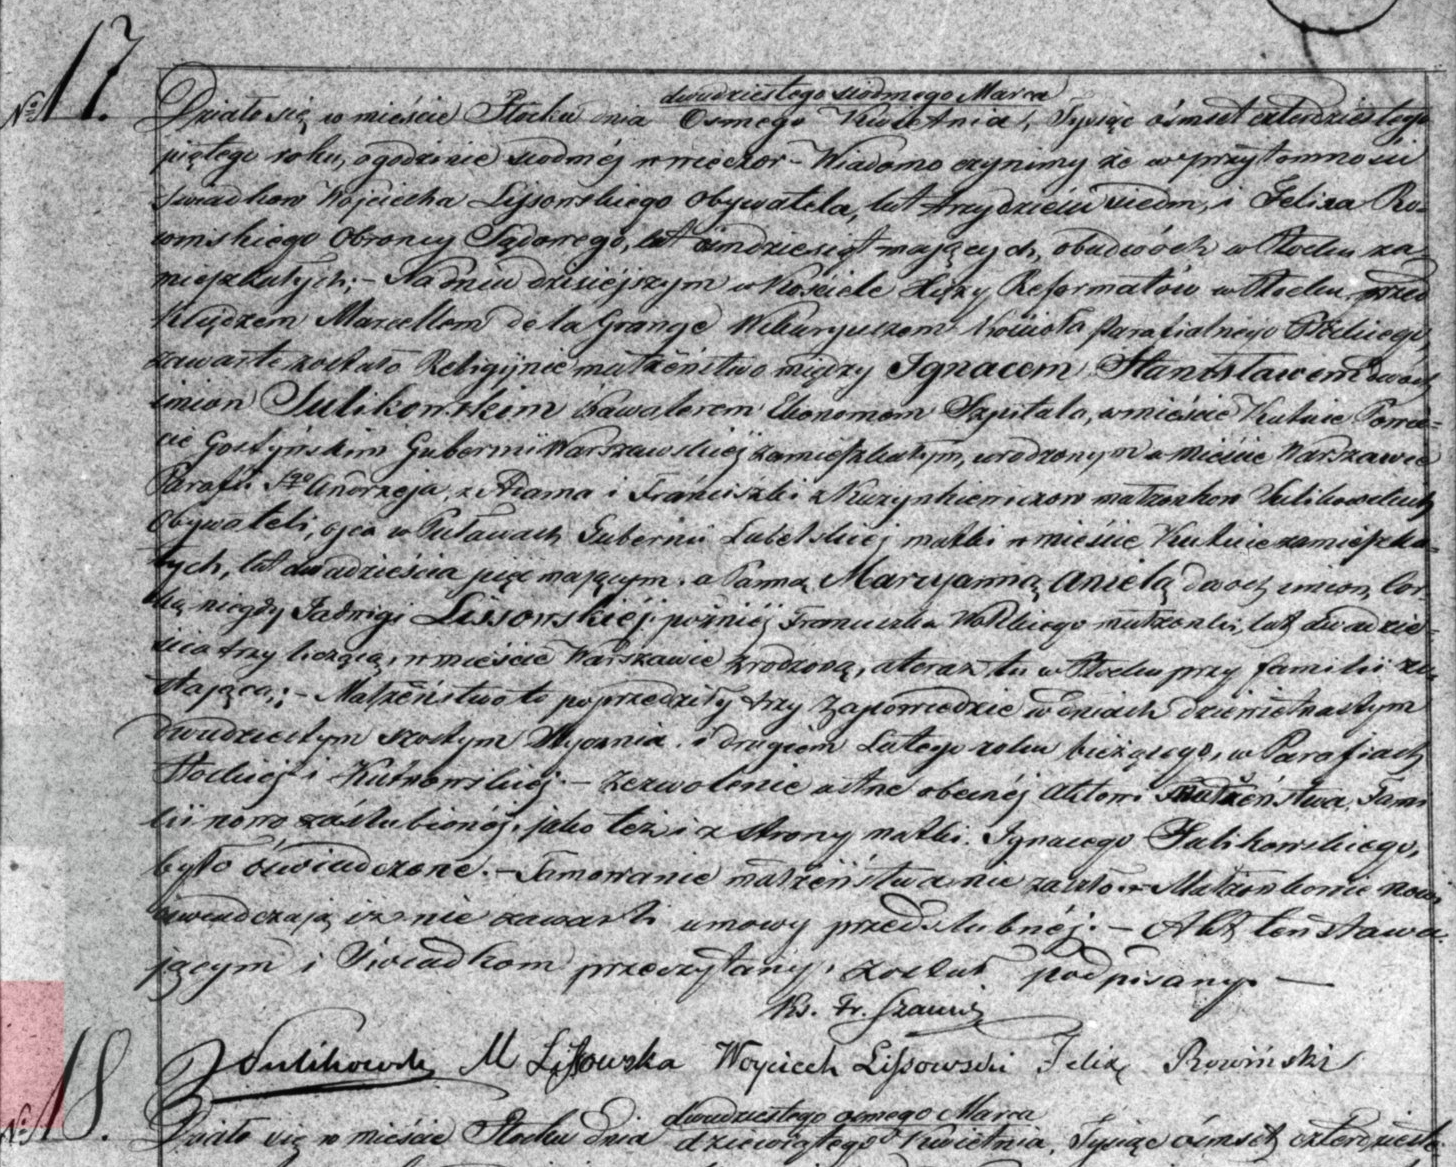 № 17.
dwudziestego siodmego Marca
Działo się w mieście Płocku dnia Osmego Kwietnia, Tysiąc ośmset czterdziestego
piątego roku, o godzinie siodméj wieczor – Wiadomo czynimy że w przytomności
świadkow Wojciecha Lissowskiego Obywatela, lat trzydzieści siedm, i Felixa Ro-
wińskiego Obroncy Sądowego, lat ośmdziesiąt mających, obudwóch w Płocku za-
mieszkałych; – Na dniu dzisiéjszym w Kościele Xięży Reformatów w Płocku przed
Xiędzem Marcellem de la Grange Wikaryuszem Kościoła Parafialnégo Płockiego,
zawarte zostało Religijnie małżeństwo między Ignacem Stanisławem dwoch
imion Sulikowskim Kawalerem Ekonomem Szpitala, w mieście Kutnie Powie-
cie Gostyńskim Gubernii Warszawskiéj zamieszkałym, urodzonym w Mieście Warszawie
Parafii Sgo Andrzeja, z Adama i Franciszki z Kuszynkiewiczow małżonkow Sulikowskich
Obywateli, ojca w Puławach Gubernii Lubelskiéj matki w mieście Kutnie zamieszka-
łych, lat dwadzieścia pięć mającym. a Panną Maryanną Anielą dwoch imion, cor-
ką niegdy Jadwigi Lissowskiéj, poźniéj Franciszka Wolskiego małżonki, lat dwadzie-
ścia trzy liczącą, w mieście Warszawie zrodzoną, a teraz tu w Płocku przy familii zo-
stającą; – Małżeństwo to poprzedziły trzy Zapowiedzie w dniach dziewiętnastym
dwudziestym szostym Stycznia i drugiem Lutego roku bieżącego, w Parafiach
Płockiéj i Kutnowskiéj. – Zezwolenie ustne obecnéj Aktowi Małżeństwa Fami
lii nowo zaślubionéj, jako też i z strony matki Ignacego Sulikowskiego,
było oświadczone. – Tamowanie małżeństwa nie zaszło. – Małżonkowie nowi
oświadczają iż nie zawarli umowy przedślubnéj. – Akt ten stawa-
jącym i Świadkom przeczytany, został podpisany. –
Ks. Fr.
Sulikowski M Lissowska Woyciech Lissowski Felix Rowiński
№ 18.
dwudziestego osmego Marca
Działo się w mieście Płocku dnia dziewiątego Kwietnia, Tysiąc ośmset czterdzieste